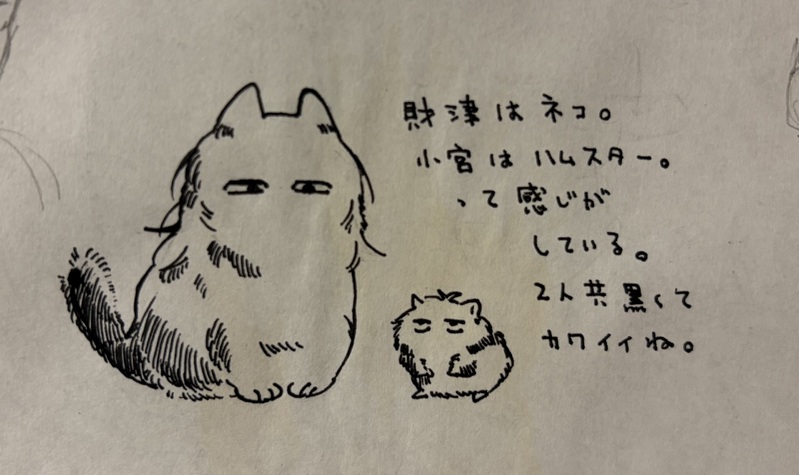 財津はネコ。
小宮はハムスター。
って感じが
している。
2人共黒くて
カワイイね。